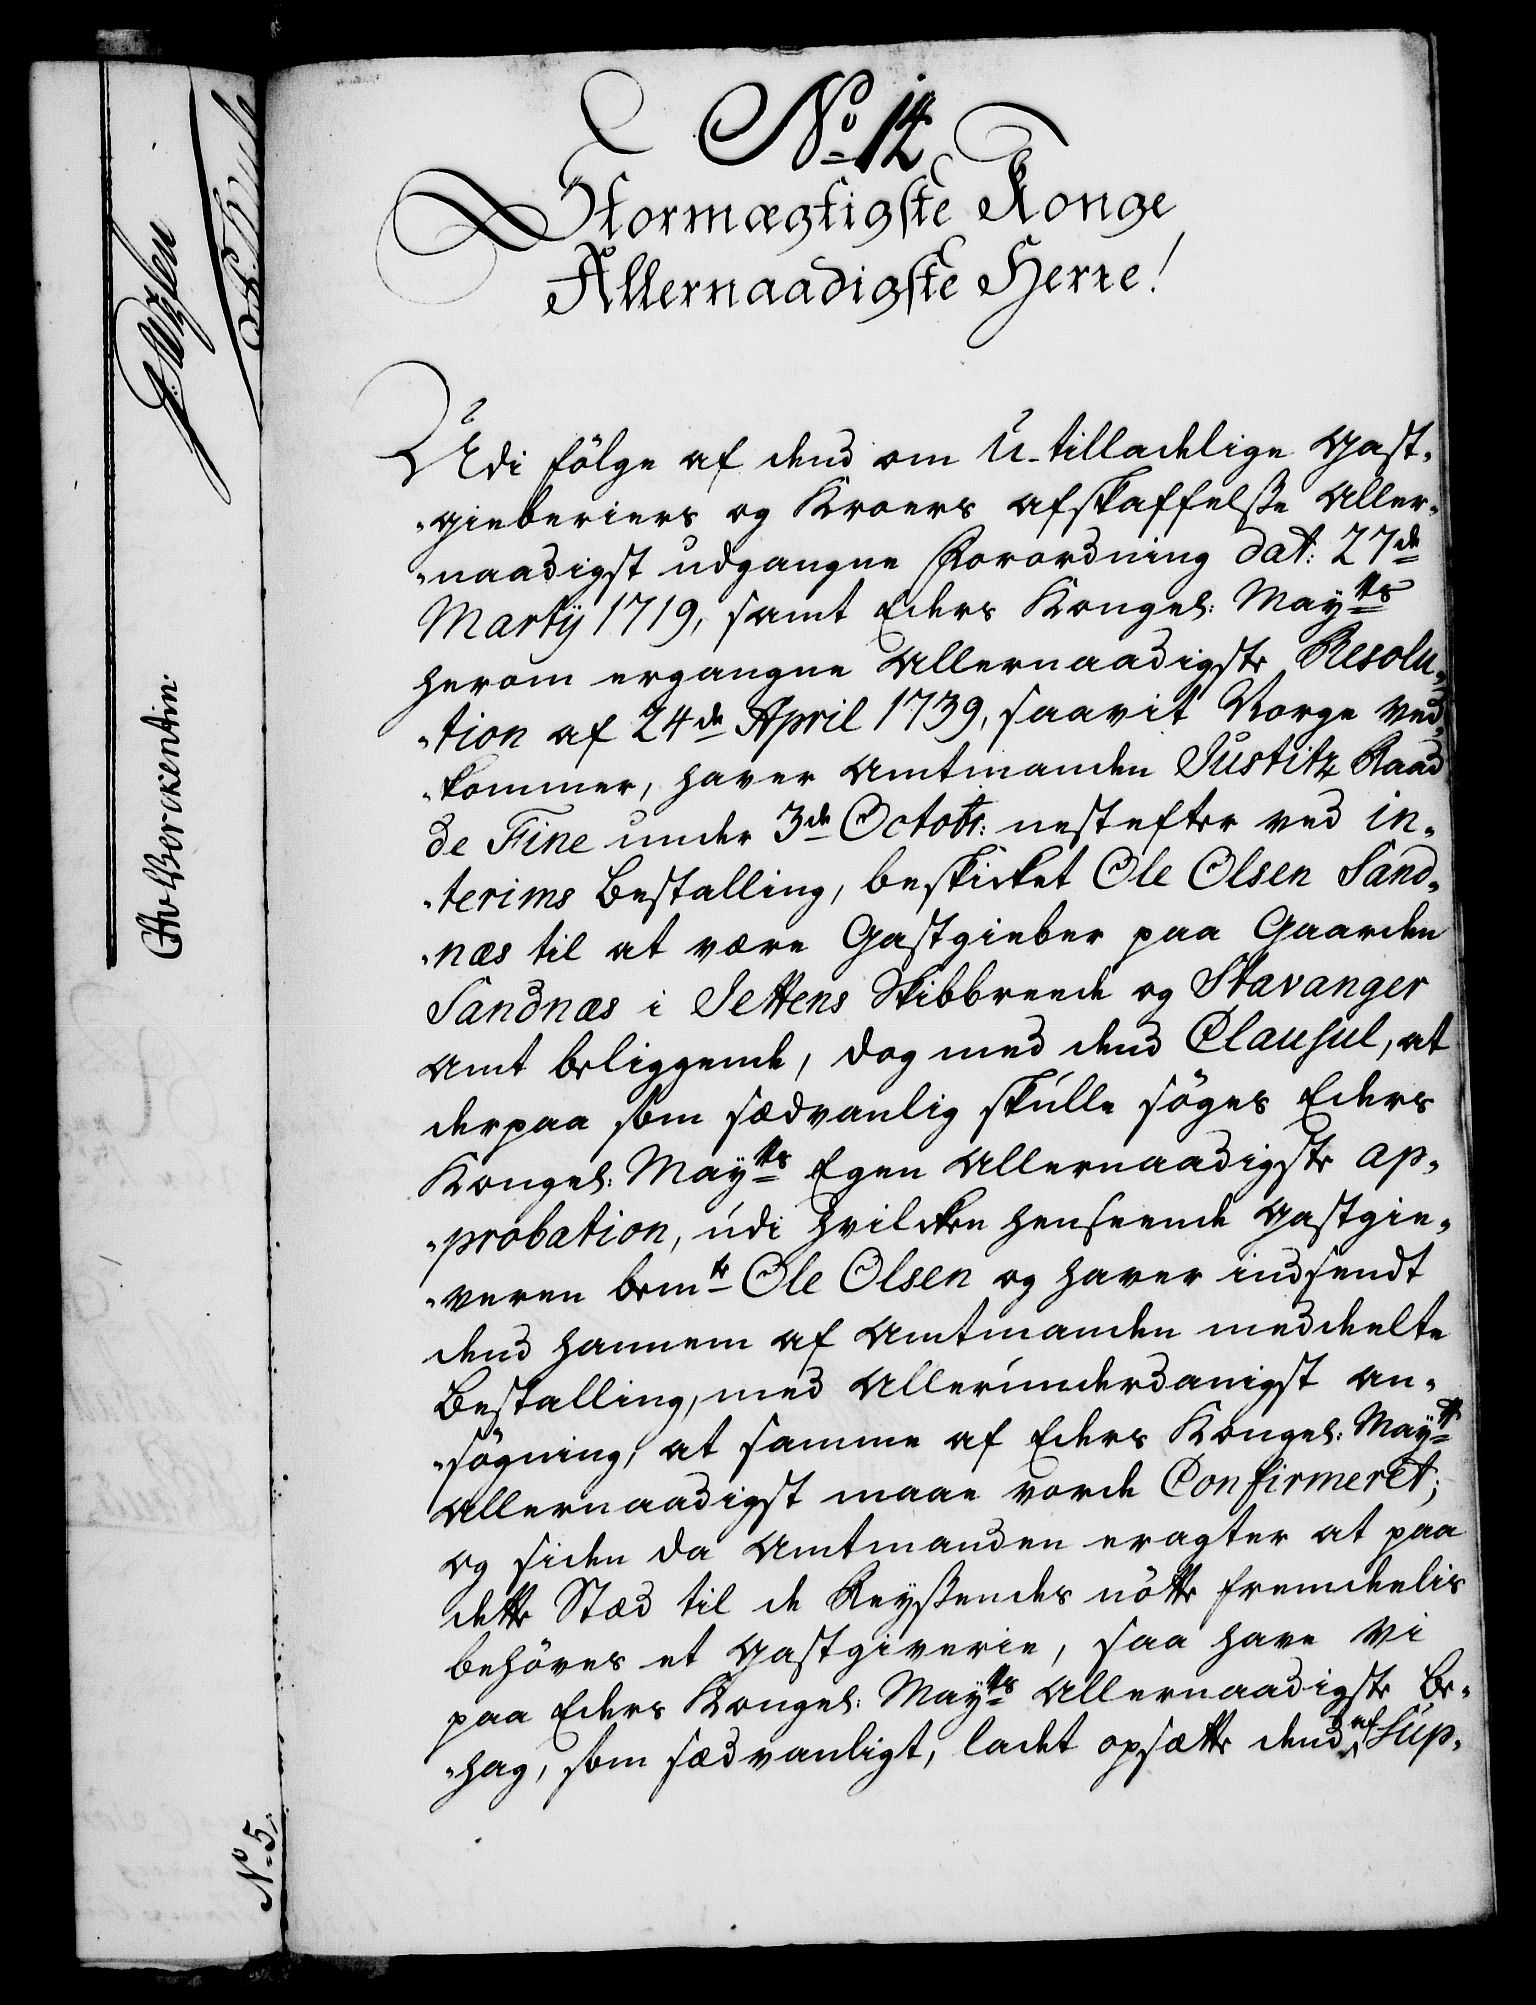 No. 12
Stormægtigste Konge
Allernaadigste Herre!
Udi følge af dend om U-tilladelige Gast-
-gieberiers og Kroers afskaffelsse Aller-
-naadigst udgangne Forordning dat: 27de
Martij 1719, samt Eders Kongel: Mayts
herom ergangne Allernaadigste Resolu-
-tion af 24de April 1739, saavit Norge ved-
-kommer, haver Amtmanden Justitz Raad
de Fine under 3de Octobr: nestefter ved in-
-terims Bestalling, beskicket Ole Olsen Sand-
-næs til at være Gastgieber paa Gaarden
Sandnæs i Jettens Skibbreede og Stavanger
Amt beliggende, dog med dend Clausul, at
derpaa som sædvanlig skulle søges Eders
Kongel: Mayts Egen Allernaadigste ap-
-probation, udi hvilcken henseende Gastgie-
-veren bemte Ole Olsen og haver indsendt
dend hannem af Amtmanden meddeelte
Bestalling, med Allerunderdanigst an-
-søgning, at samme af Eders Kongel: Maytt
Allernaadigst maae vorde Confirmeret;
og siden da Amtmanden eragter at paa
dette Stæd til de Reyssendes nøtte fremdeelis
behøves et Gastgiverie, saa have Vi
paa Eders Kongel: Mayts Allernaadigste Be-
-hag, som sædvanligt, ladet opsætte dend af Sup-
Av Berckentin.
No. 5.